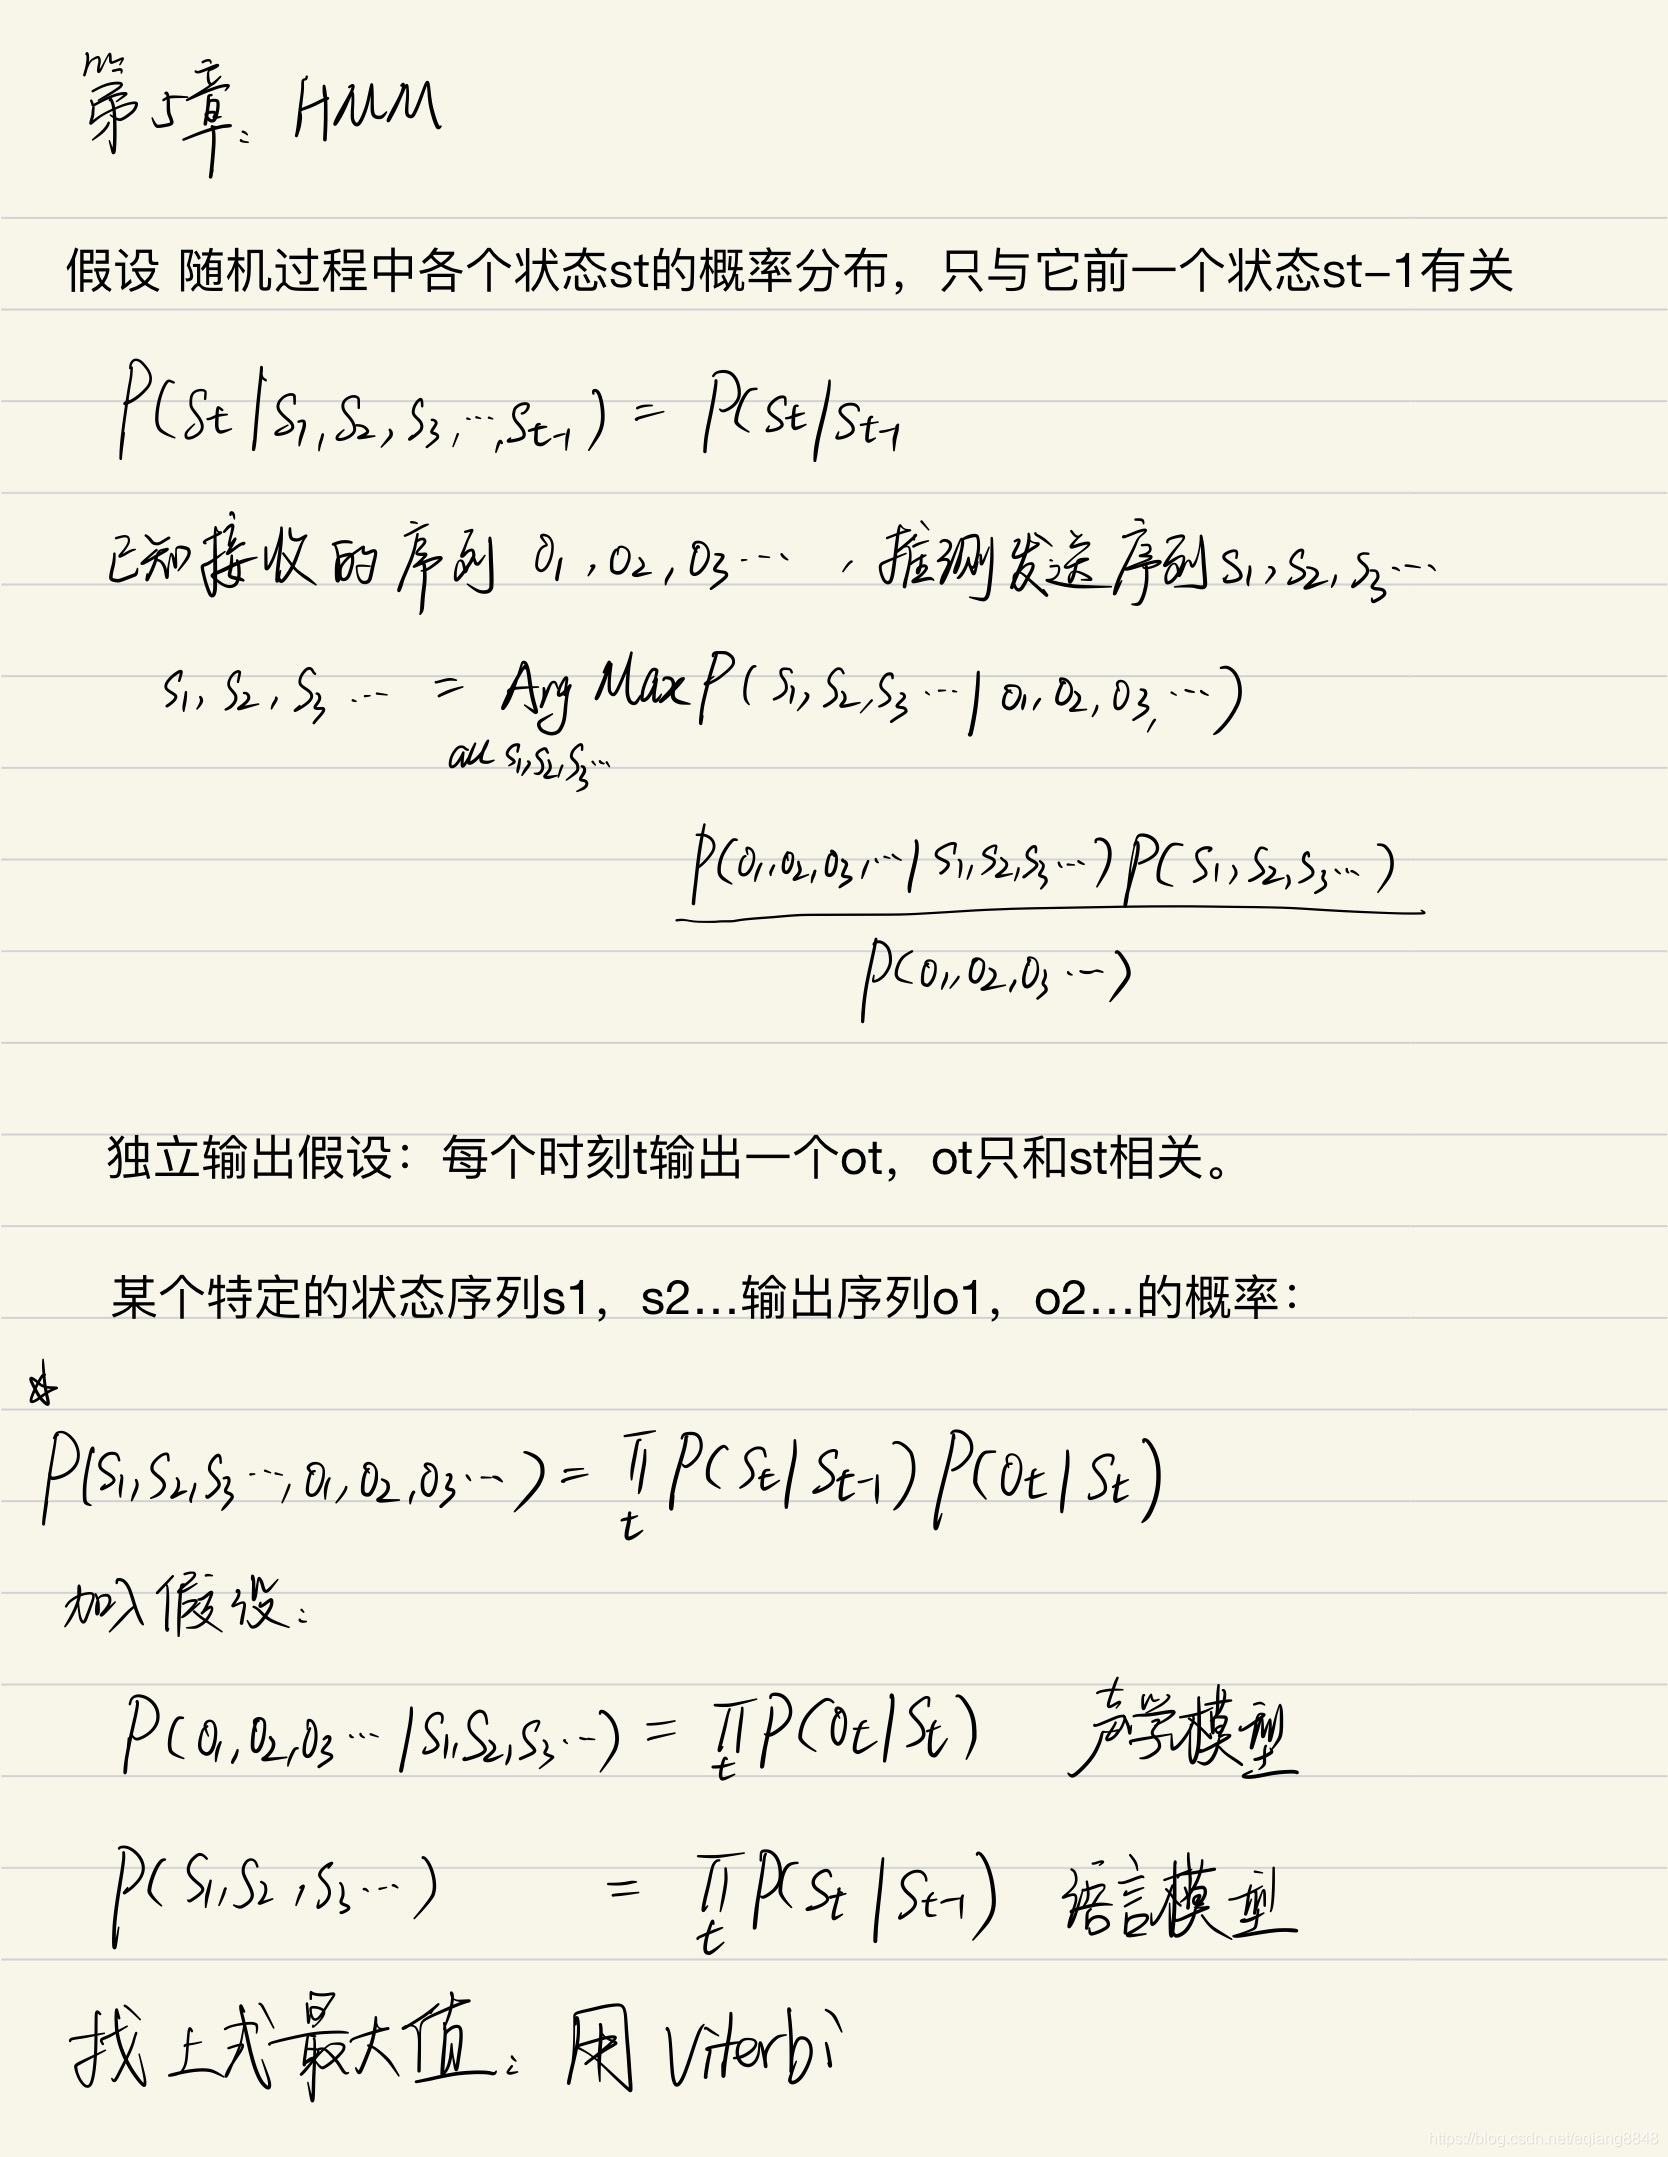 第5章: HMM
假设 随机过程中各个状态st的概率分布，只与它前一个状态st-1有关
P(St|S1,S2,S3,…,St-1) = P(St|St-1
已知接收的序列 O1,O2,O3… , 推测发送序列S1,S2,S3…
S1,S2,S3… = Arg Max P(S1,S2,S3…|O1,O2,O3,…)
all S1,S2,S3…
P(O1,O2,O3,…|S1,S2,S3…)P(S1,S2,S3…)
P(O1,O2,O3…)
独立输出假设：每个时刻t输出一个ot，ot只和st相关。
某个特定的状态序列s1，s2...输出序列o1，o2...的概率：
☆
P(S1,S2,S3…,O1,O2,O3…) = ∏ P(St|St-1)P(Ot|St)
t
加入假设:
P(O1,O2,O3…|S1,S2,S3…) = ∏ P(Ot|St) 声学模型
t
P(S1,S2,S3…) = ∏ P(St|St-1) 语言模型
t
找上式最大值: 用 Viterbi
https://blog.csdn.net/eqiang8848